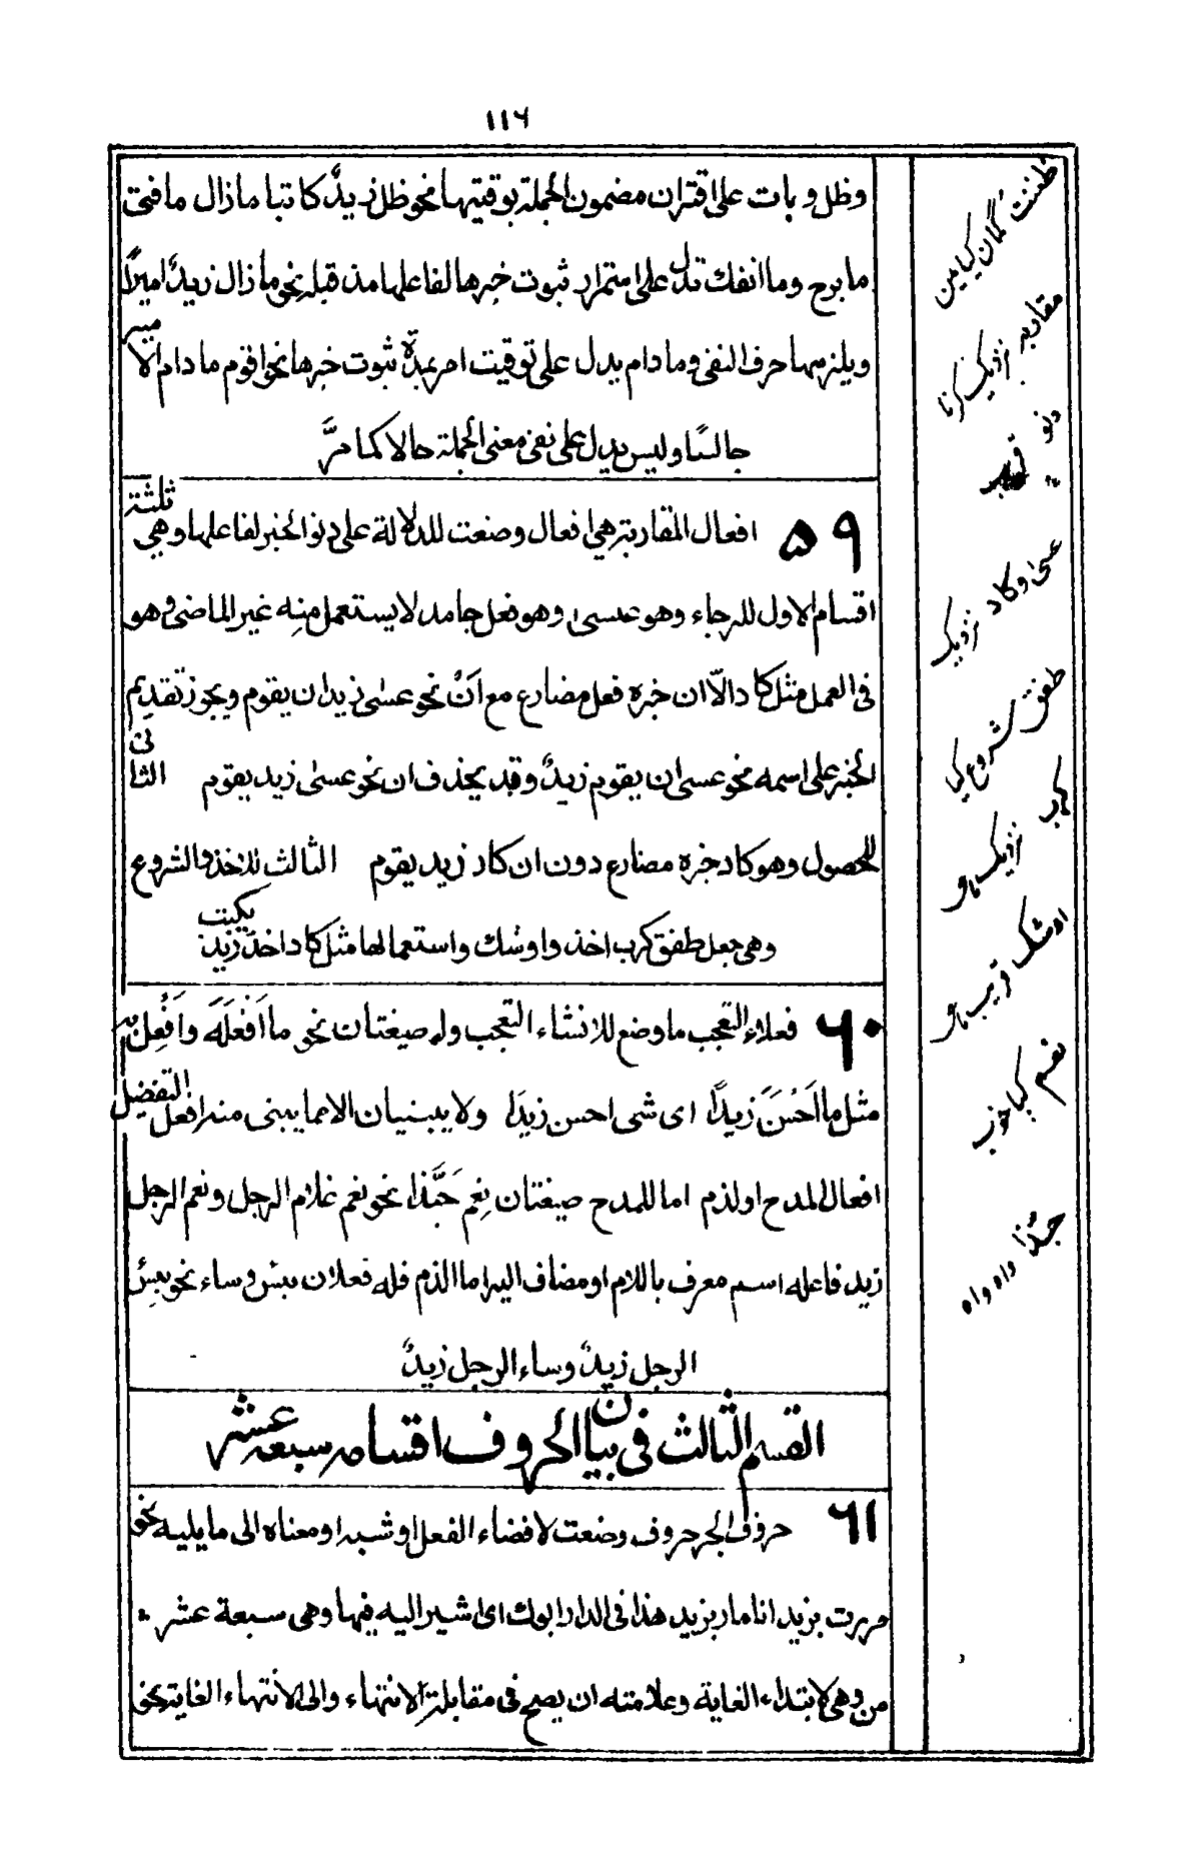 ١١٦
وظل وبات على اقتران مضمون الجملة بوقتيها نحو ظل زيدٌ كاتبا مازال مافتئ
مابرح وما انفك تدل على استمرار ثبوت خبرها لفاعلها مذ قبله نحو مازال زيدٌ اميرًا
ويلزمها حرف النفى ومادام يدل على توقيت امر بمدة ثبوت خبرها نحو اقوم مادام الامير
جالسًا وليس يدل على نفى معنى الجملة حالا كما مرَّ
٥٩ افعال المقاربة هى افعال وضعت للدلالة على دنو الخبر لفاعلها وهى ثلثة
اقسام الاول للرجاء وهو عسىٰ وهو فعل جامد لا يستعمل منه غير الماضى وهو
فى العمل مثل كاد الّا ان خبره فعل مضارع مع اَنْ نحو عسىٰ زيد ان يقوم ويجوز تقديم
الخبر على اسمه نحو عسىٰ ان يقوم زيدٌ وقد يحذف ان نحو عسىٰ زيد يقوم الثانى
للحصول وهو كاد خبره مضارع دون ان كاد زيد يقوم الثالث للاخذ والشروع
وهى جعل طفق كرب اخذ واوشك واستعمالها مثل كاد اخذ زيد يكتب
٦٠ فعلاء التعجب ماوضع للانشاء التعجب وله صيغتان نحو ما اَفْعَلَهٗ واَفْعِلْ بہ
مثل ما اَحْسَنَ زيدًا اى شى احسن زيدَا ولا يبنيان الا مما يبنى منه افعل التفضيل
افعال المدح او لذم اما للمدح صيغتان نِعِم حَبَّذا نحو نعم غلام الرجل ونعم الرجل
زيد فاعله اسم معرف باللام او مضاف اليه اما الذم فله فعلان بئس وساء نحو بئس
الرجل زيدٌ وساء الرجل زيدٌ
القسم الثالث فى بيان الحروف اقسامہ سبعة عشر
٦١ حروف الجر حروف وضعت لافضاء الفعل او شبهه او معناه الى مايليه نحو
مررت بزيد انا مار بزيد هذا فى الدار ابوك اى اشير اليه فيها وهى سبعة عشر
من وهى لابتداء الغاية وعلامته ان يصح فى مقابلة الانتهاء والى لانتهاء الغاية نحو
ظننت گمان کیا میں
مقاربہ نزدیک کرنا
دنو قریب
عسیٰ وکاد نزدیک
طفق شروع کیا
کرب نزدیک ہوا
اوشک قریب ہوا
نعم کیا خوب
حبّذا واہ واہ